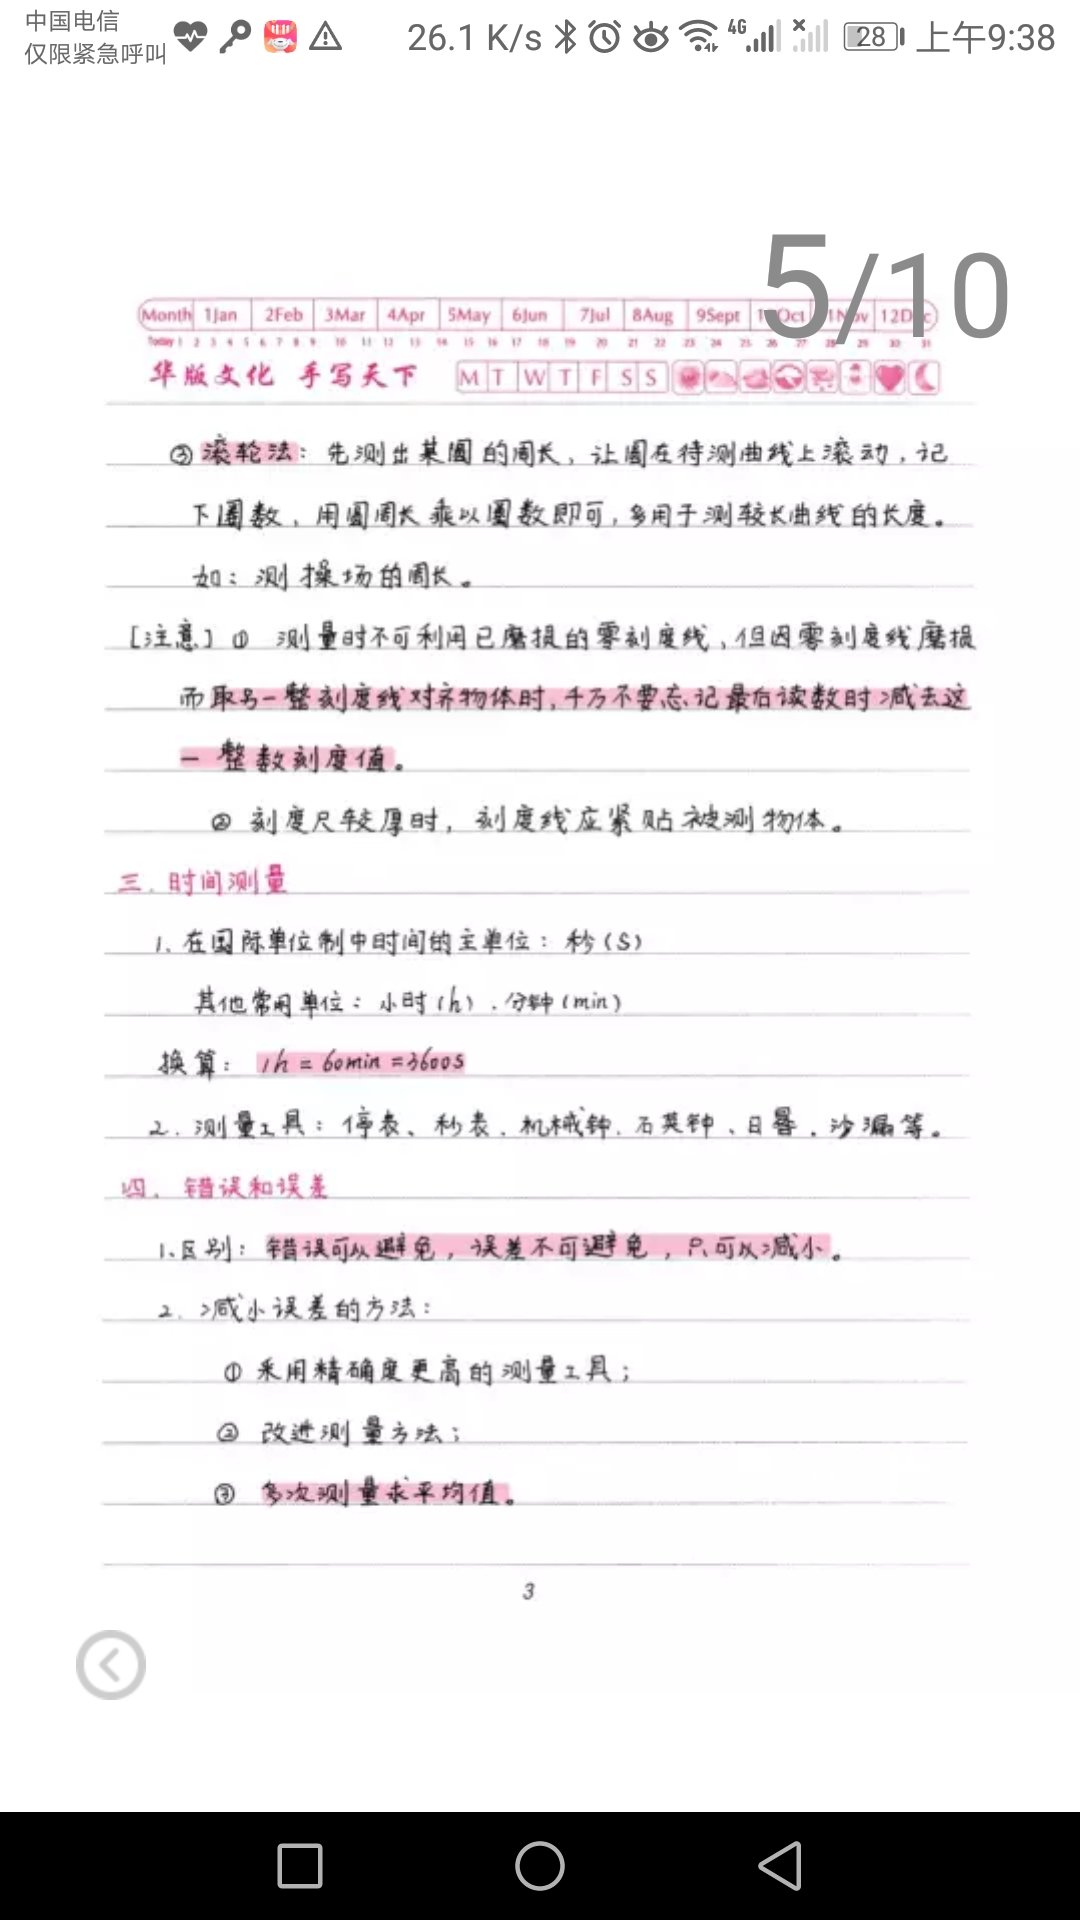 中国电信
仅限紧急呼叫
26.1 K/s 4G 28 上午9:38
5/10
Month 1Jan 2Feb 3Mar 4Apr 5May 6Jun 7Jul 8Aug 9Sept 12D
华版文化 手写天下 M T W T F S S
③滚轮法：先测出某圆的周长，让圆在待测曲线上滚动，记
下圈数，用圆周长乘以圈数即可，多用于测较长曲线的长度。
如：测操场的周长。
[注意] ① 测量时不可利用已磨损的零刻度线，但因零刻度线磨损
而取另一整刻度线对齐物体时，千万不要忘记最后读数时减去这
一整数刻度值。
② 刻度尺较厚时，刻度线应紧贴被测物体。
三．时间测量
1．在国际单位制中时间的主单位：秒(S)
其他常用单位：小时(h)．分钟(min)
换算：1h=60min=3600s
2．测量工具：停表、秒表．机械钟．石英钟、日晷．沙漏等。
四．错误和误差
1．区别：错误可以避免，误差不可避免，只可以减小。
2．减小误差的方法：
① 采用精确度更高的测量工具；
② 改进测量方法；
③ 多次测量求平均值。
3